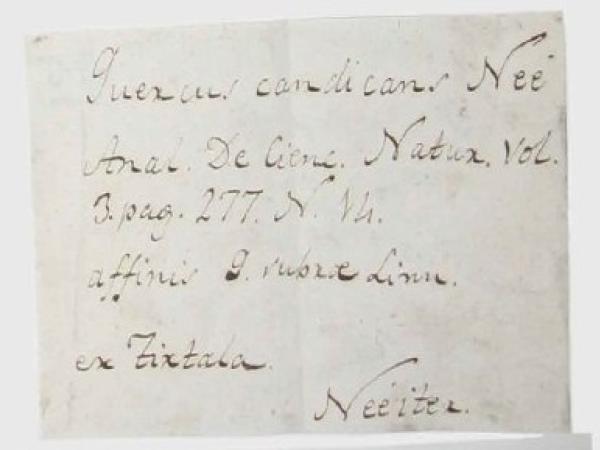 Quercus candicans Neé
Anal. De Cienc. Natur. Vol.
3. pag. 277. N.
affinis Q. rubræ Linn.
ex Tixtala.
Neé iter.